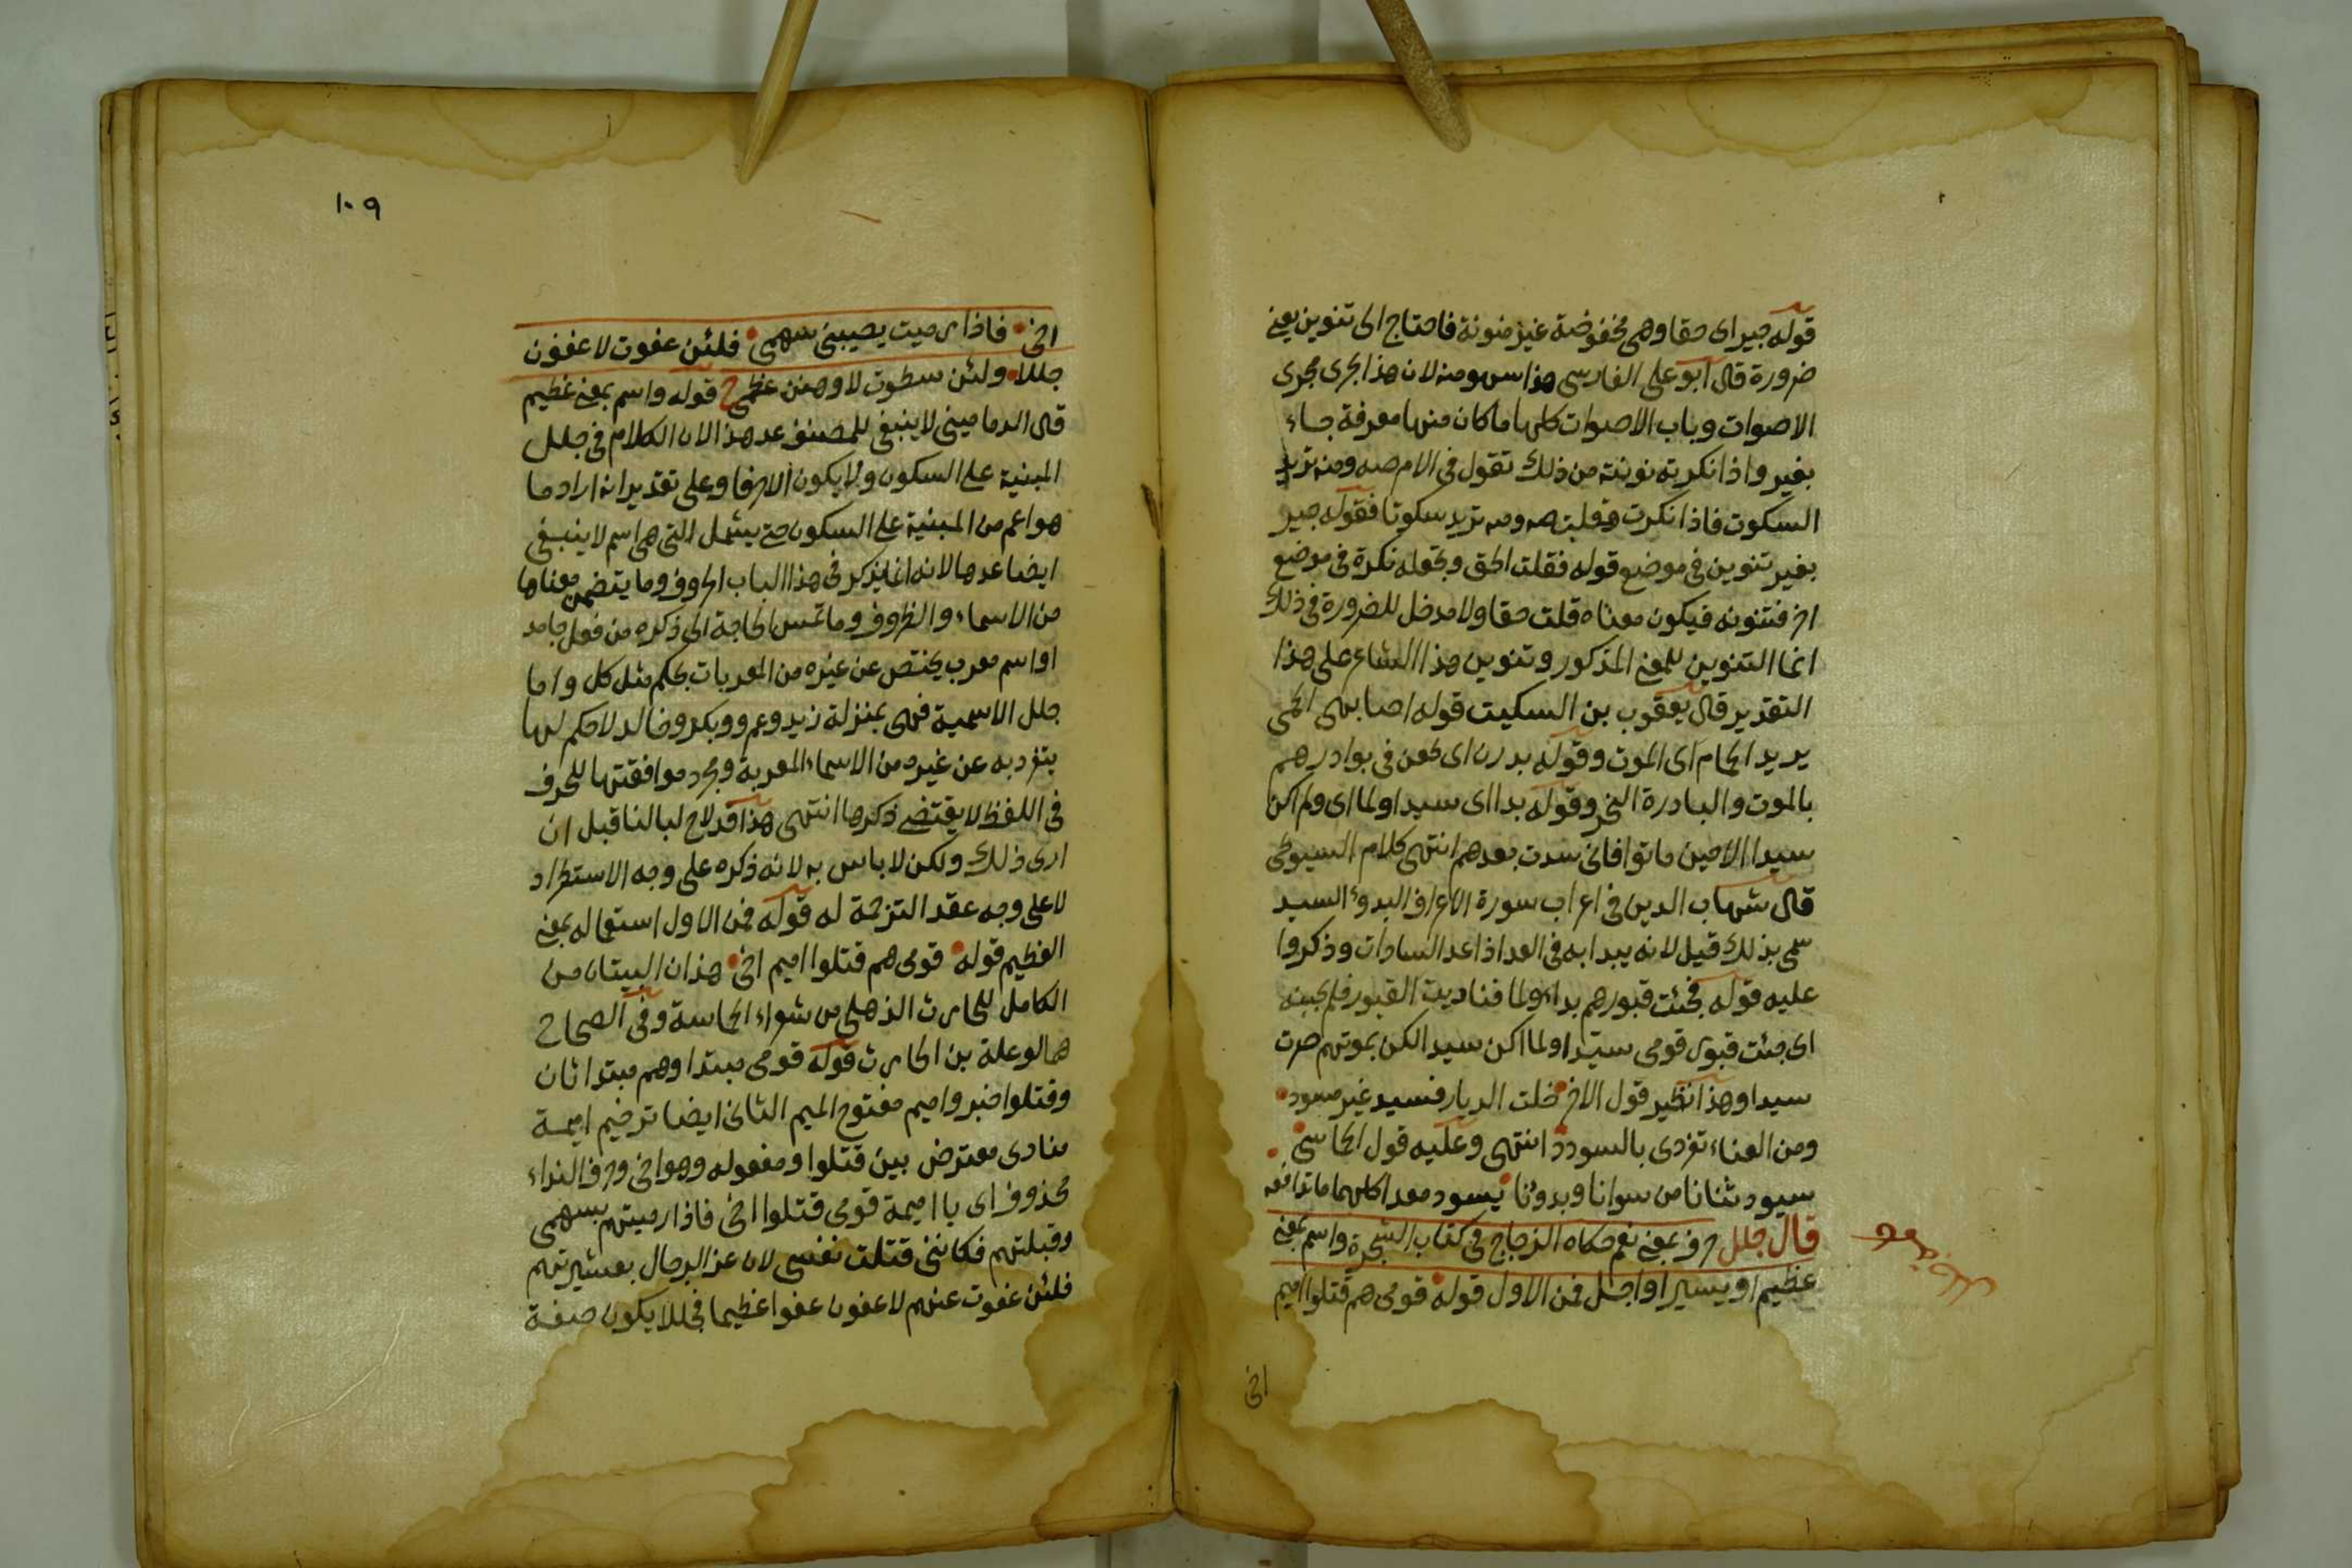 قوله جير اى حقا وهى مخفوضة غير منونة فاحتاج الى تنوين يعنى
ضرورة قال ابو على الفارسى هذا سهو منه لان هذا يجرى مجرى
الاصوات وباب الاصوات كلها ما كان منها معرفة جاء
بغير واذا نكرته نونته من ذلك تقول فى الامر صه ومه تريد
السكوت فاذا نكرت قلت صه ومه تريد سكوتا فقوله جير
بغير تنوين فى موضع قوله فقلت الحق وتجعله نكرة فى موضع
اخر فتنونه فيكون معناه قلت حقا ولا مدخل للضرورة فى ذلك
انما التنوين للمعنى المذكور وتنوين هذا الشاعر على هذا
التقدير قال يعقوب بن السكيت قوله اصابهم الحمى
يريد الحمام اى الموت وقوله بدرن اى طعن فى بوادرهم
بالموت والبادرة النحر وقوله بدا اى سيدا ولما اى ولم اكن
سيدا الا حين ماتوا فانى سدت بعدهم انتهى كلام السيوطى
قال شهاب الدين فى اعراب سورة الاعراف البدؤ السيد
سمى بذلك قيل لانه يبدا به فى العد اذا عد السادات وذكروا
عليه قوله فجئت قبورهم بداء ولما فناديت القبور فلم يجبنه
اى جئت قبور قومى سيدا ولما اكن سيدا لكن بموتهم صرت
سيدا وهذا نظير قول الاخر خلت الديار فسيد غير مسود
ومن العناء تفردى بالسودد انتهى وعليه قول الحماسى
سيود ثنانا من سوانا وبدؤنا يسود معدا كلها ما تدافعه
قال جلل حرف بمعنى نعم حكاه الزجاج فى كتاب الشجرة واسم بمعنى
عظيم او يسير او اجل فمن الاول قوله قومى هم قتلوا اميم
اخى
١٠٩
اخى فاذا رميت يصيبنى سهمى فلئن عفوت لاعفون
جللا ولئن سطوت لاوهنن عظمى قوله واسم بمعنى عظيم
قال الدمامينى لا ينبغى للمصنف عد هذا لان الكلام فى جلل
المبنية على السكون ولا يكون الا حرفا وعلى تقدير انه اراد ما
هو اعم من المبنية على السكون حتى يشمل التى هى اسم لا ينبغى
ايضا عدها لانه انما يذكر فى هذا الباب الحروف وما يتضمن معناها
من الاسماء والظروف وما تمس الحاجة الى ذكره من فعل جامد
او اسم معرب يختص عن غيره من المعربات بحكم مثل كل واما
جلل الاسمية فهى بمنزلة زيد وعمرو وبكر وخالد لا حكم لها
ينفرد به عن غيره من الاسماء المعربة ومجرد موافقتها للحرف
فى اللفظ لا يقتضى ذكرها انتهى هذا قد لاح لبالنا قبل ان
ارى ذلك ولكن لا باس به لانه ذكره على وجه الاستطراد
لا على وجه عقد الترجمة له قوله فمن الاول استعماله بمعنى
العظيم قوله قومى هم قتلوا اميم اخى هذان البيتان من
الكامل للحارث الذهلى من شعراء الحماسة وفى الصحاح
هما لوعلة بن الحارث قوله قومى مبتدا وهم مبتدا ثان
وقتلوا خبر واميم مفتوح الميم الثانى ايضا ترخيم اميمة
منادى معترض بين قتلوا ومفعوله وهو اخى وحرف النداء
محذوف اى يا اميمة قومى قتلوا اخى فاذا رميتهم بسهمى
وقبلتهم فكاننى قتلت نفسى لان عز الرجال بعشيرتهم
فلئن عفوت عنهم لاعفون عفوا عظيما فجللا يكون صفة